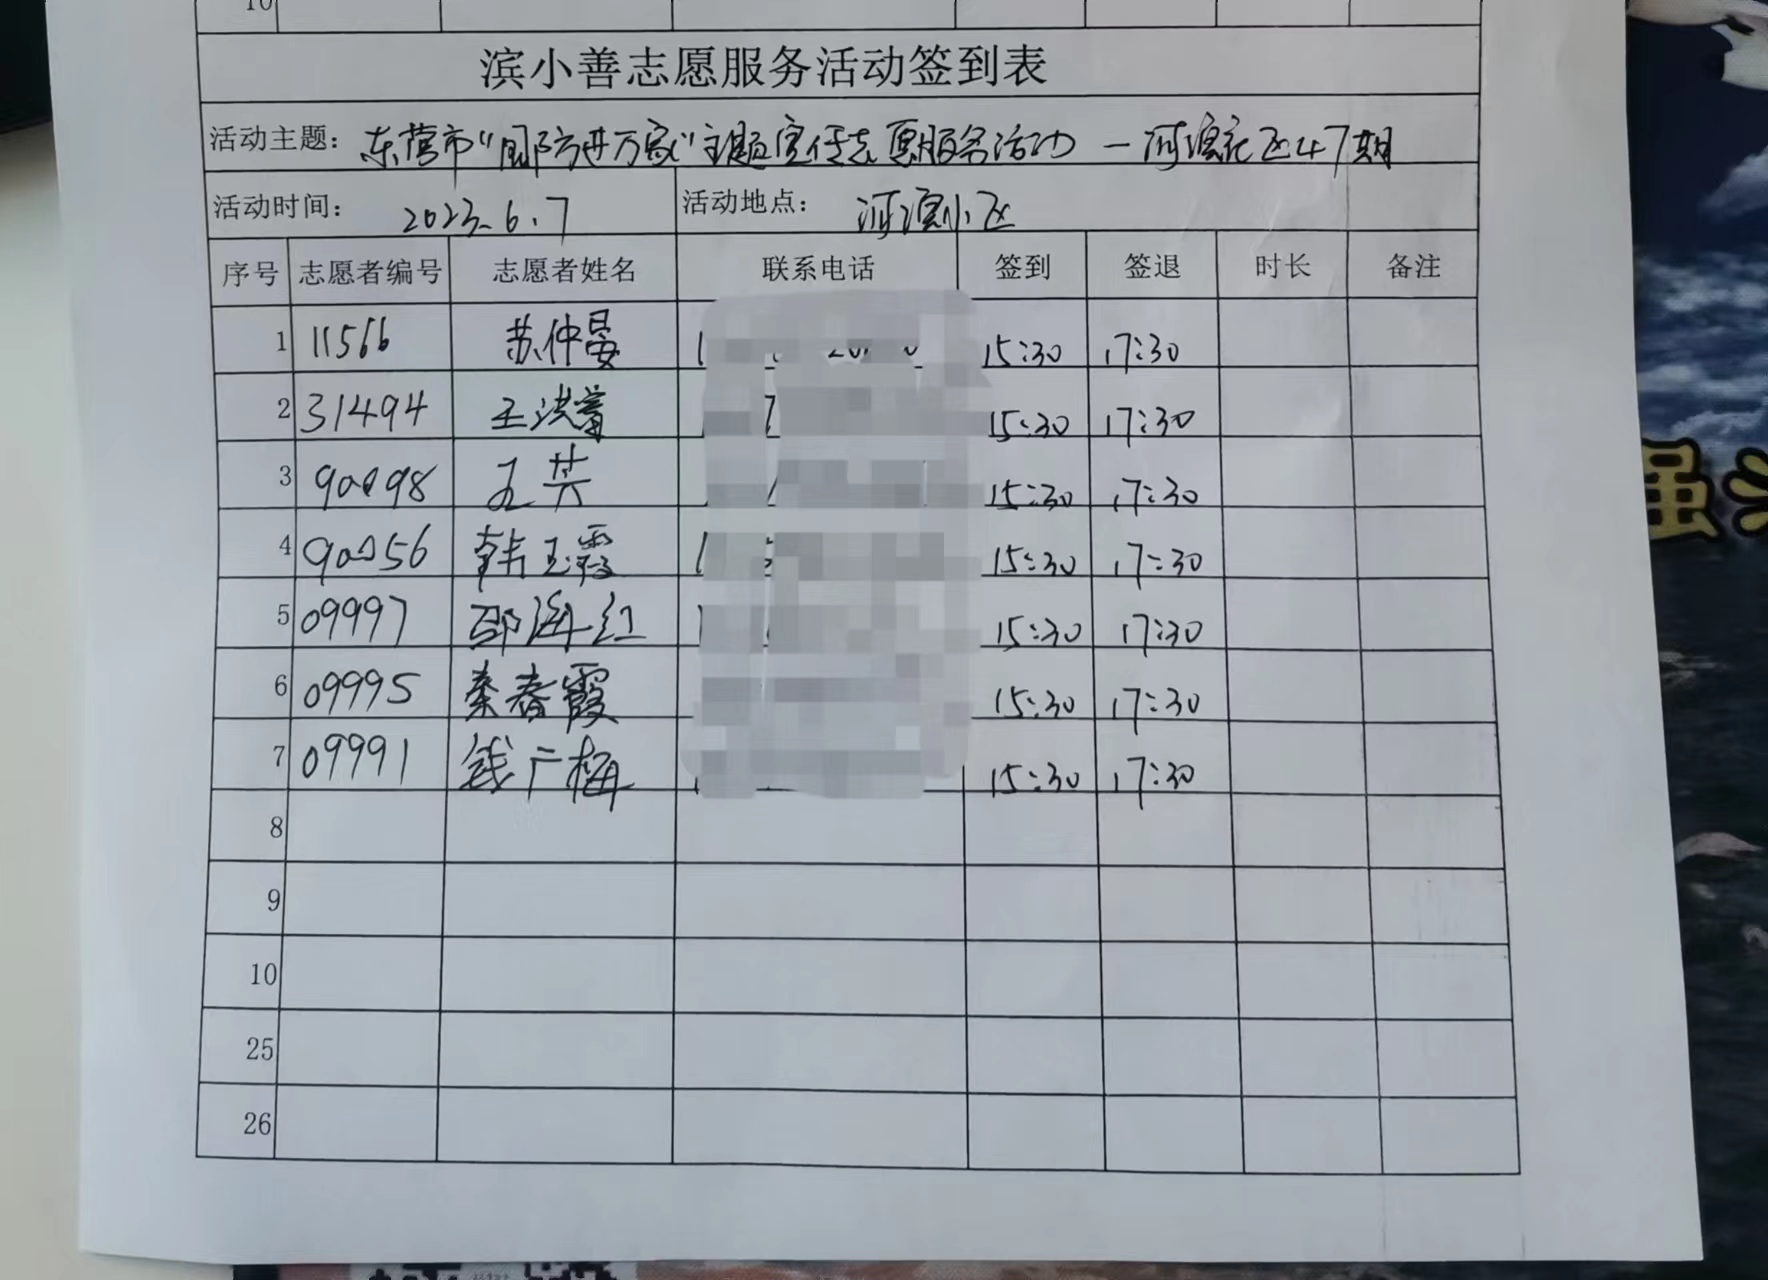 10
滨小善志愿服务活动签到表
活动主题: 东营市“国防进万家”主题宣传志愿服务活动 — 河滨社区47期
活动时间: 2023.6.7 活动地点: 河滨小区
序号 志愿者编号 志愿者姓名 联系电话 签到 签退 时长 备注
1 11566 苏仲晏 15:30 17:30
2 31494 王洪 15:30 17:30
3 王芸 15:30 17:30
4 韩玉霞 15:30 17:30
5 09997 邵海红 15:30 17:30
6 09995 秦春霞 15:30 17:30
7 09991 钱广梅 15:30 17:30
8
9
10
25
26
强